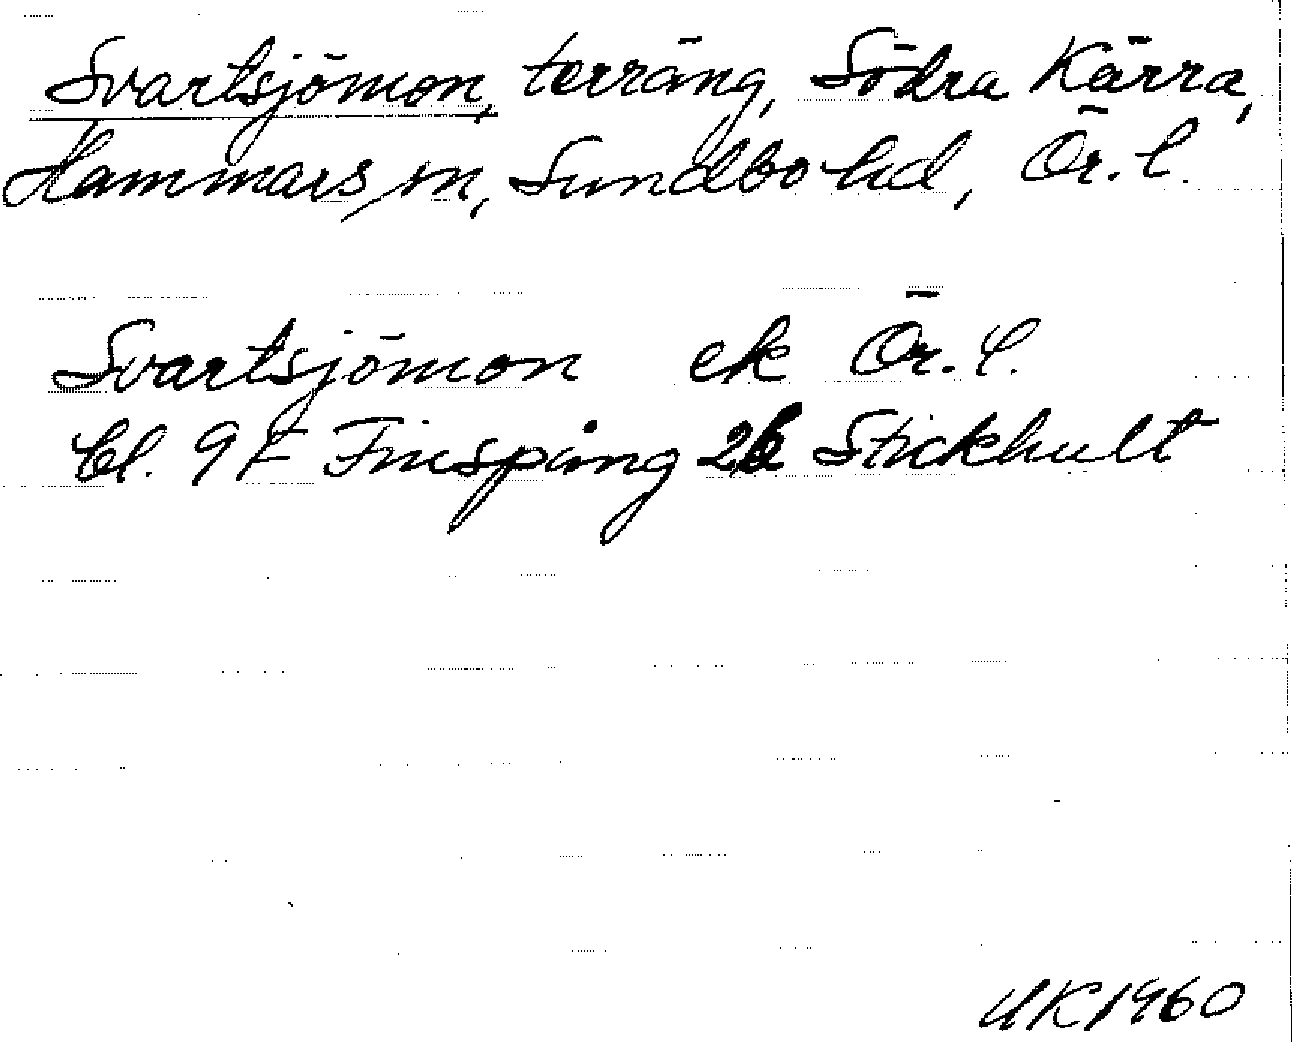 Svartsjömon, terräng, Södra Kärra,
Hammars sn, Sundbo hd, Ör. l.
Svartsjömon ek Ör. l.
bl. 9 F Finspång 2b Stickhult
UK 1960